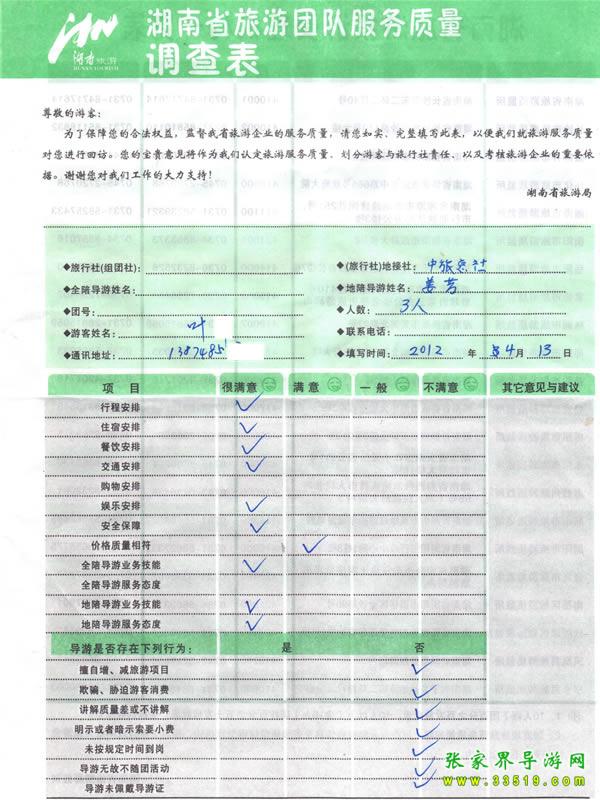 湖南省旅游团队服务质量
调查表
湖南旅游
HUNAN TOURISM
尊敬的游客:
为了保障您的合法权益,监督我省旅游企业的服务质量,请您如实、完整填写此表,以便我们就旅游服务质量
对您进行回访。您的宝贵意见将作为我们认定旅游服务质量、划分游客与旅行社责任、以及考核旅游企业的重要依
据。谢谢您对我们工作的大力支持!
湖南省旅游局
◆旅行社(组团社): ◆(旅行社)地接社: 中旅总社
◆全陪导游姓名: ◆地陪导游姓名: 姜芳
◆团号: ◆人数: 3人
◆游客姓名: 叶 ◆联系电话:
◆通讯地址: 1387485 ◆填写时间: 2012 年 4 月 13 日
项 目 很满意 满 意 一 般 不满意 其它意见与建议
行程安排 ✓
住宿安排 ✓
餐饮安排 ✓
交通安排 ✓
购物安排
娱乐安排 ✓
安全保障 ✓
价格质量相符 ✓
全陪导游业务技能 ✓
全陪导游服务态度
地陪导游业务技能 ✓
地陪导游服务态度 ✓
导游是否存在下列行为: 是 否
擅自增、减旅游项目 ✓
欺骗、胁迫游客消费 ✓
讲解质量差或不讲解 ✓
明示或者暗示索要小费 ✓
未按规定时间到岗 ✓
导游无故不随团活动 ✓
导游未佩戴导游证 ✓
张家界导游网
www.33519.com